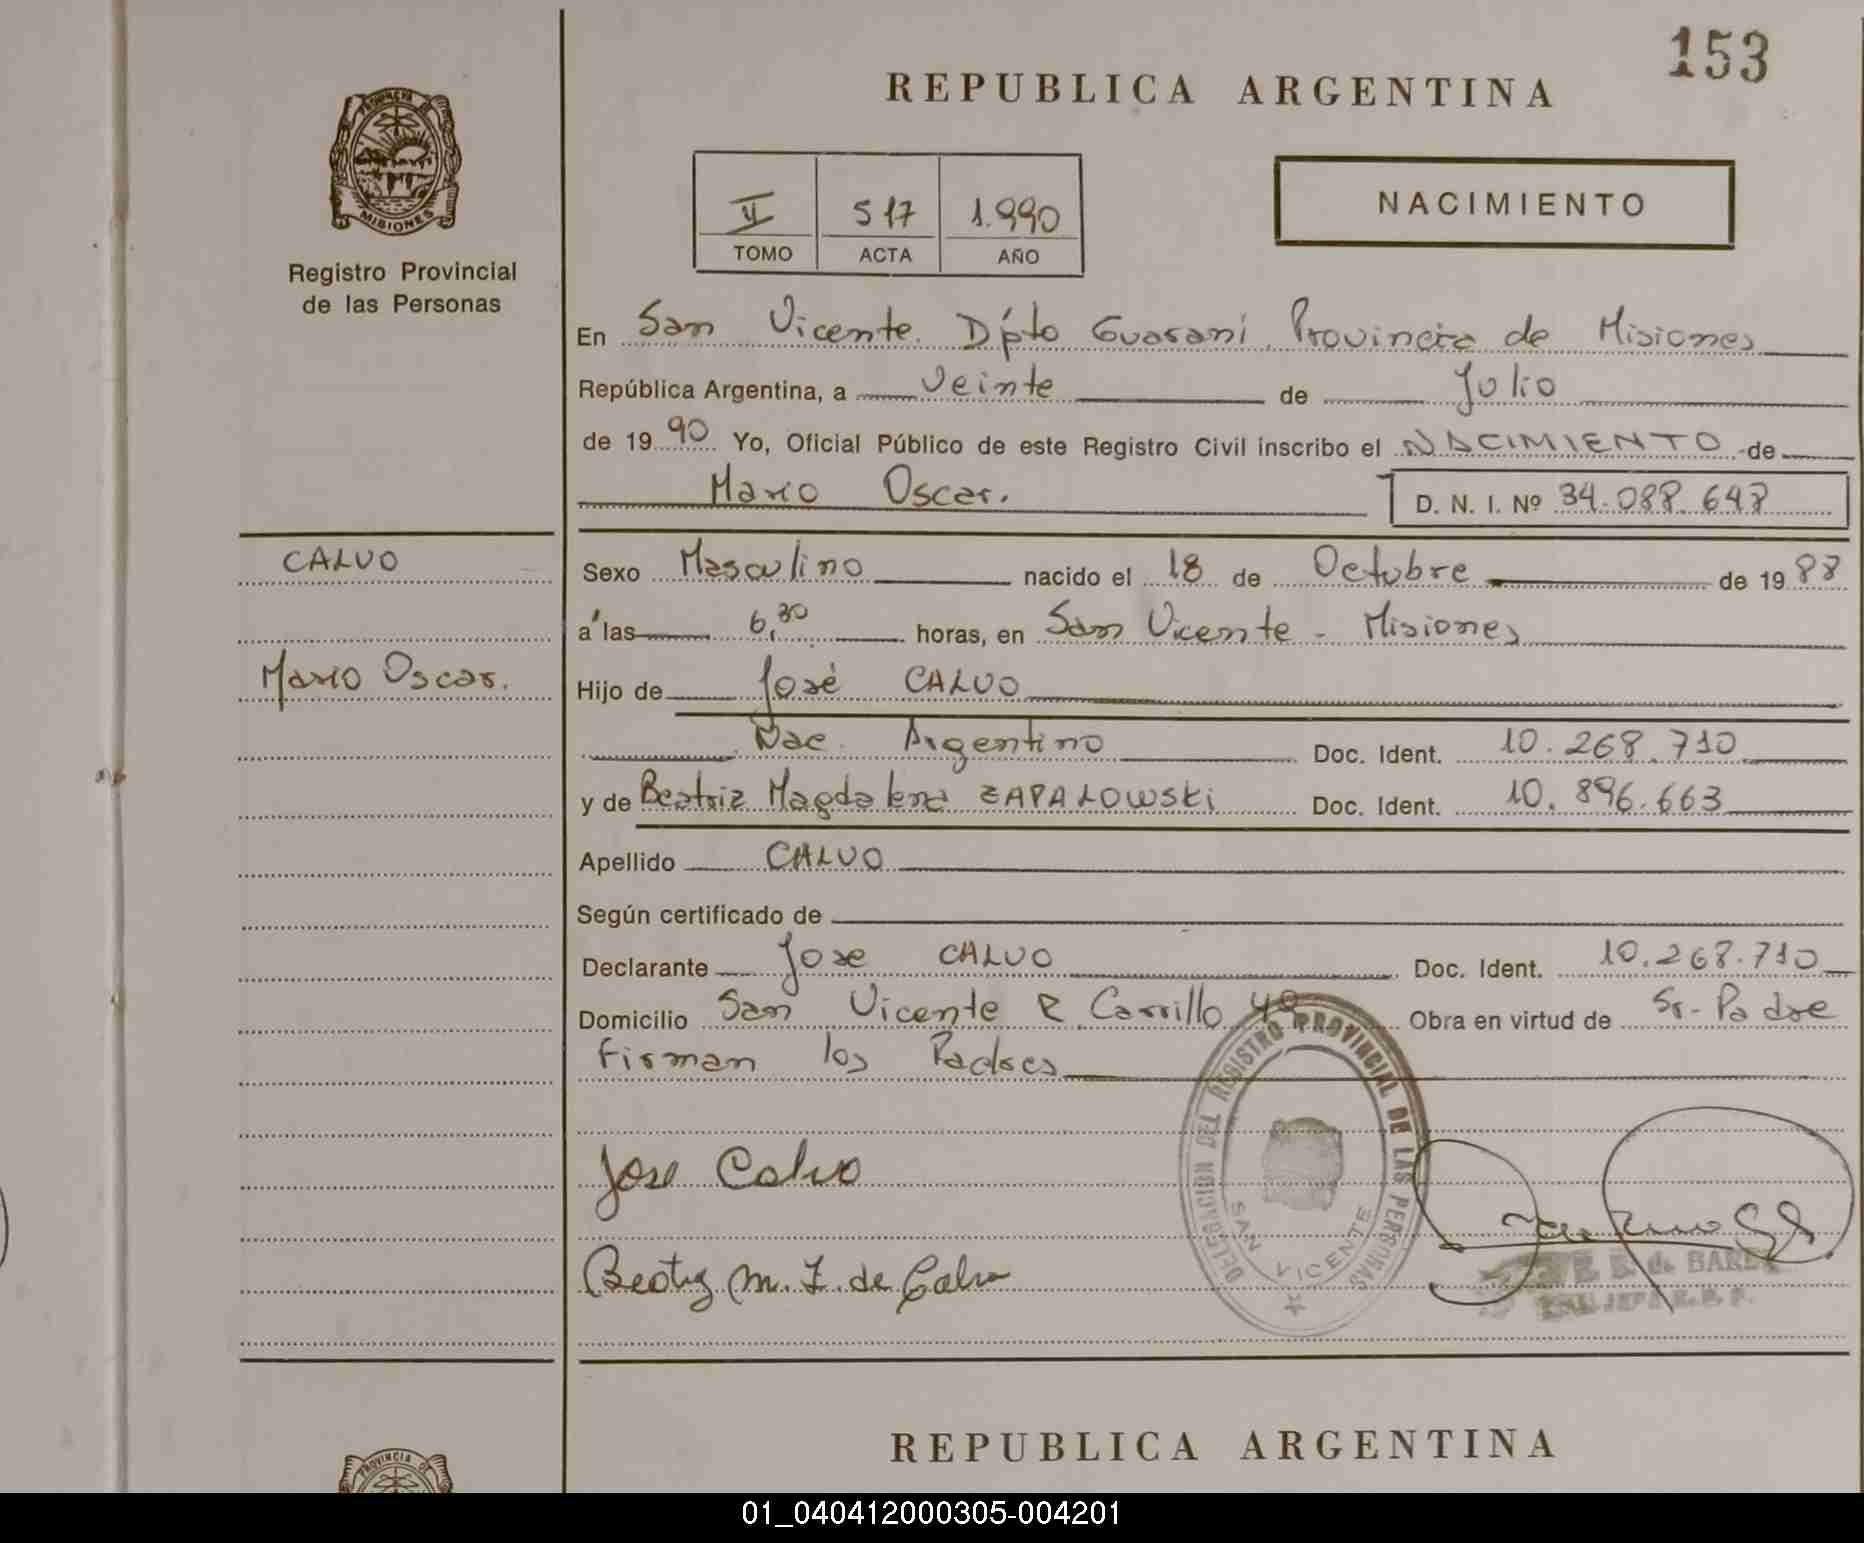 153
REPUBLICA ARGENTINA
PROVINCIA DE
MISIONES
Registro Provincial
de las Personas
II 517 1.990
TOMO ACTA AÑO
NACIMIENTO
En San Vicente. Dpto Guaraní. Provincia de Misiones
República Argentina, a veinte de Julio
de 1990 Yo, Oficial Público de este Registro Civil inscribo el NACIMIENTO de
Mario Oscar. D. N. I. Nº 34.088.648
CALVO
Mario Oscar.
Sexo Masculino nacido el 18 de Octubre de 1988
a las 6,30 horas, en San Vicente - Misiones
Hijo de José CALVO
Nac. Argentino Doc. Ident. 10.268.710
y de Beatriz Magdalena ZAPALOWSKi Doc. Ident. 10.896.663
Apellido CALVO
Según certificado de
Declarante Jose CALVO Doc. Ident. 10.268.710
Domicilio San Vicente R. Carrillo 49 Obra en virtud de Sr. Padre
Firman los Padres
DELEGACION DEL REGISTRO PROVINCIAL DE LAS PERSONAS
SAN VICENTE
Jose Calvo
Beatriz M. Z. de Calvo
REPUBLICA ARGENTINA
PROVINCIA DE
01_040412000305-004201